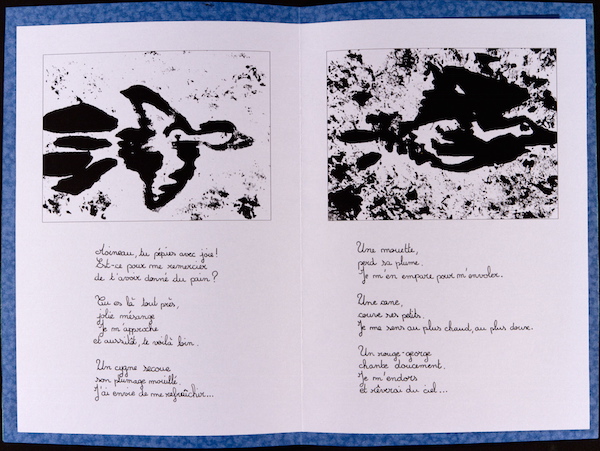 Moineau, tu pépies avec joie!
Est-ce pour me remercier
de t'avoir donné du pain?
Tu es là tout près,
jolie mésange
Je m'approche
et aussitôt, te voilà loin.
Un cygne secoue
son plumage mouillé.
J'ai envie de me rafraîchir...
Une mouette,
perd sa plume.
Je m'en empare pour m'envoler.
Une cane,
couve ses petits.
Je me sens au plus chaud, au plus doux.
Un rouge-gorge
chante doucement.
Je m'endors
et rêverai du ciel...